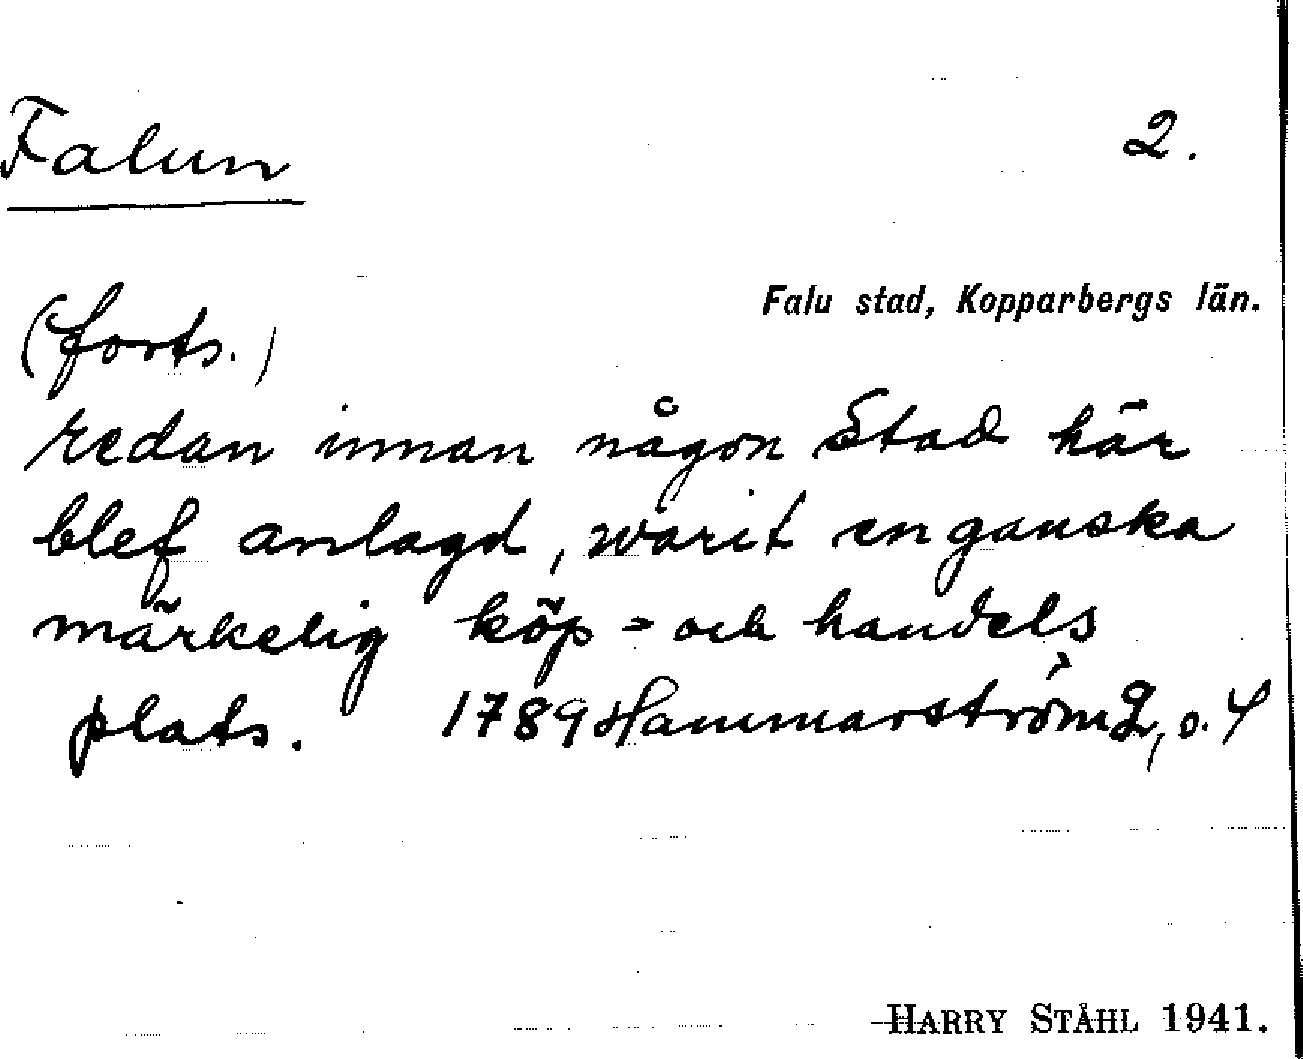 Falun
2.
Falu stad, Kopparbergs län.
(forts.)
redan innan någon Stad här
blef anlagd, warit en ganska
märkelig köp= och handels
plats. 1789 Hammarström 2, s. 4
HARRY STÅHL 1941.